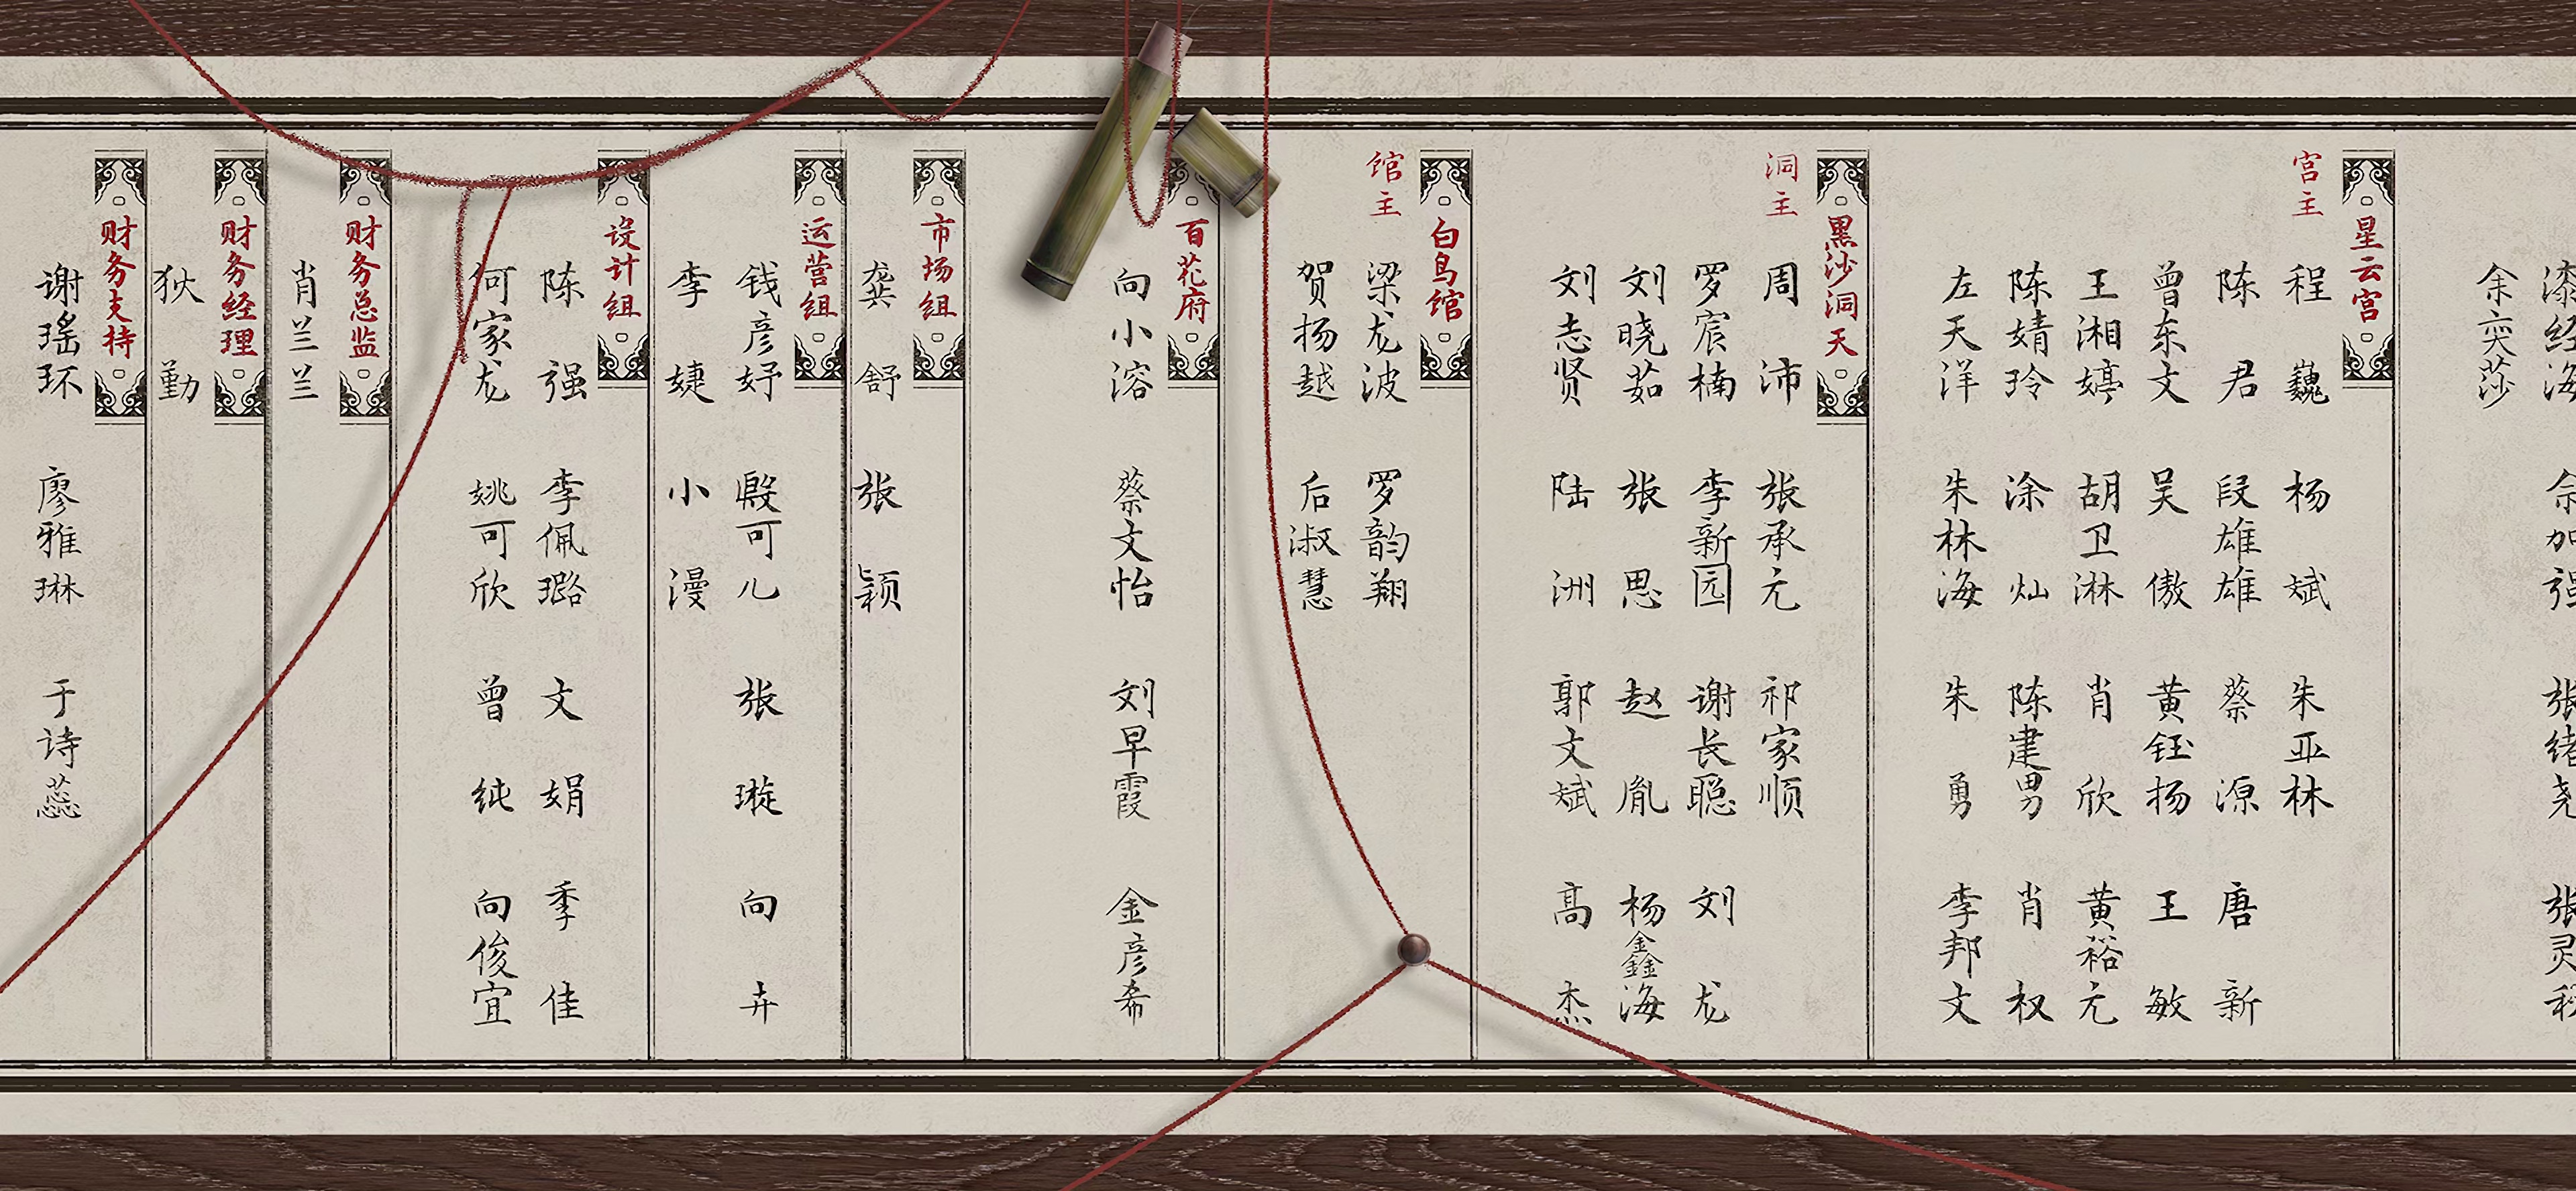 漆经海 余加强 张绪尧 张灵秘
余奕莎
星云宫
宫主
程巍 杨斌 朱亚林
陈君 段雄雄 蔡源 唐新
曾东文 吴傲 黄钰扬 王敏
王湘婷 胡卫淋 肖欣 黄裕元
陈婧玲 涂灿 陈建男 肖权
左天洋 朱林海 朱勇 李邦文
黑沙洞天
洞主
周沛 张承元 祁家顺
罗宸楠 李新园 谢长聪 刘龙
刘晓茹 张思 赵胤 杨鑫海
刘志贤 陆洲 郭文斌 高杰
白鸟馆
馆主
梁龙波 罗韵翔
贺扬越 后淑慧
百花府
向小溶 蔡文怡 刘早霞 金彦希
市场组
龚舒 张颖
运营组
钱彦妤 殷可儿 张璇 向卉
李婕 小漫
设计组
陈强 李佩璐 文娟 季佳
何家龙 姚可欣 曾纯 向俊宜
财务总监
肖兰兰
财务经理
狄勤
财务支持
谢瑶环 廖雅琳 于诗蕊